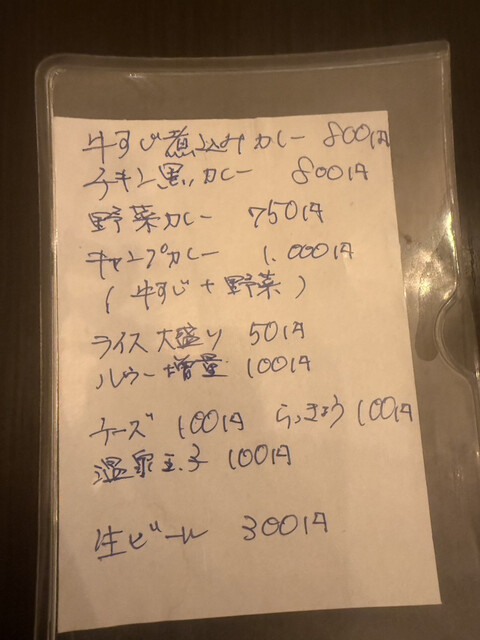 牛すじ煮込みカレー 800円
チキン黒カレー 800円
野菜カレー 750円
キャンプカレー 1.000円
(牛すじ+野菜)
ライス大盛り 50円
ルゥー増量 100円
チーズ 100円 らっきょう 100円
温泉玉子 100円
生ビール 300円